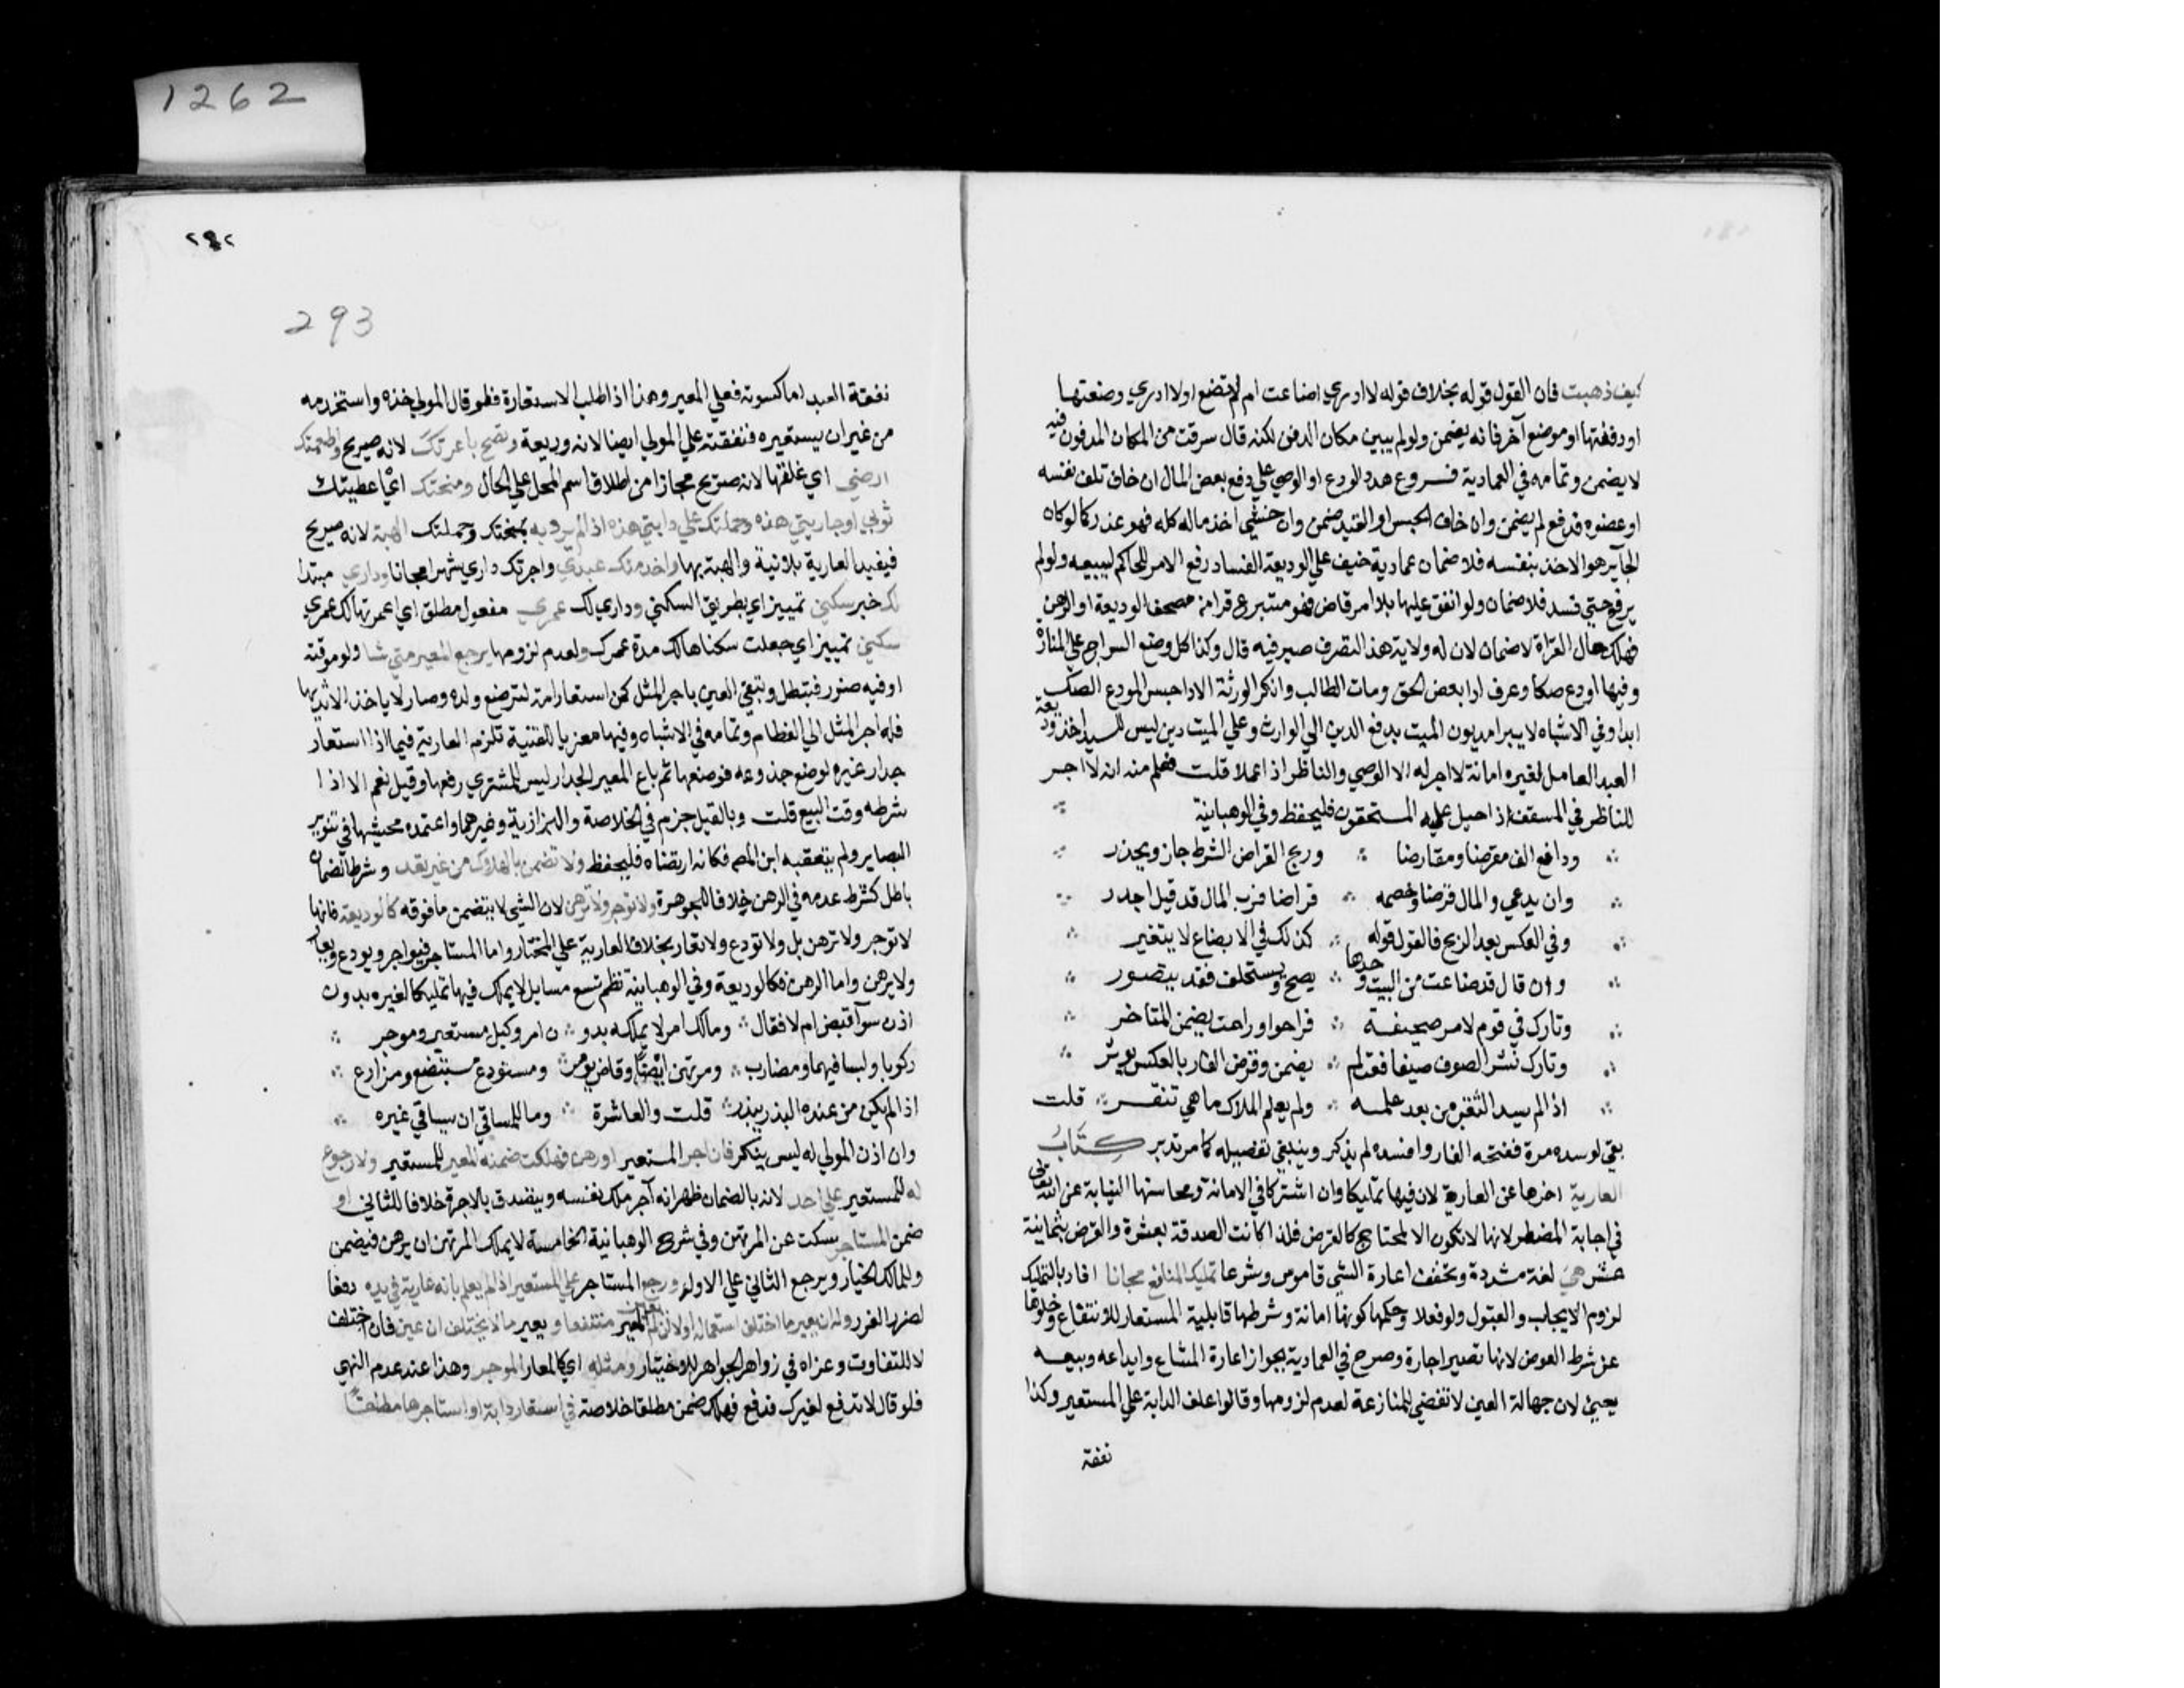 كيف ذهبت فان القول قوله بخلاف قوله لا ادري اضاعت ام لم تضع او لا ادري وضعتها
او دفنتها او موضع آخر فانه يضمن ولو لم يبين مكان الدفن لكنه قال سرقت من المكان المدفون فيه
لا يضمن وتمامه في العمادية فروع هدد المودع او الوصي علي دفع بعض المال ان خاف تلف نفسه
او عضوه فدفع لم يضمن وان خاف الحبس او القيد ضمن وان خشي اخذ ماله كله فهو عذر كما لو كان
الجآير هو الاخذ بنفسه فلا ضمان عمادية خيف علي الوديعة الفساد رفع الامر للحاكم ليبيعه ولو لم
يرفع حتي فسد فلا ضمان ولو انفق عليها بلا امر قاض فهو متبرع قرا من مصحف الوديعة او الرهن
فهلك حال القراة لا ضمان لان له ولاية هذا التصرف صيرفيه قال وكذا لو وضع السراج علي المنارة
وفيها اودع صكا وعرف ادا بعض الحق ومات الطالب وانكر الورثة الادا حبس المودع الصك
ابدا وفي الاشباه لا يبرا مديون الميت بدفع الدين الي الوارث وعلي الميت دين ليس للسيد اخذ وديعة
العبد العامل لغيره امانة لا اجر له الا الوصي والناظر اذا عملا قلت فعلم منه ان لا اجر
للناظر في المسقف اذا احيل عليه المستحقون فليحفظ وفي الوهبانية
ودافع الف مقرضا ومقارضا ∴ وربح القراض الشرط جاز ويحذر
وان يدعي ذو المال قرضا وخصمه ∴ قراضا فرب المال قد قيل اجدر
وفي العكس بعد الربح فالقول قوله ∴ كذلك في الابضاع لا يتغير
وان قال قد ضاعت من البيت وحدها ∴ يصح ويستحلف فقد يتصور
وتارك في قوم لامر صحيفة ∴ فراحوا وراحت يضمن المتاخر
وتارك نشر الصوف صيفا فعث لم ∴ يضمن وقرض الفار بالعكس يوثر
اذا لم يسد الثقب من بعد علمه ∴ ولم يعلم الملاك ما هي تنقر ∴ قلت
بقي لو سده مرة ففتحه الفار وافسده لم يذكر وينبغي تفصيله كما مر تدبر كتاب
العارية اخرها عن العارية لان فيها تمليكا وان اشتركا في الامانة ومحاسنها النيابة عن الله تعالي
في اجابة المضطر لانها لا تكون الا لمحتاج كالقرض فلذا كانت الصدقة بعشرة والقرض بثمانية
عشر هي لغة مشددة وتخفف اعارة الشي قاموس وشرعا تمليك المنافع مجانا افاد بالتمليك
لزوم الايجاب والقبول ولو فعلا وحكمها كونها امانة وشرطها قابلية المستعار للانتفاع وخلوها
عن شرط العوض لانها تصير اجارة وصرح في العمادية بجواز اعارة المشاع وايداعه وبيعه
يعني لان جهالة العين لا تفضي للمنازعة لعدم لزومها وقالوا علف الدابة علي المستعير وكذا
نفقة
٢٩٢
293
نفقة العبد اما كسوته فعلي المعير وهذا اذا طلب الاستعارة فلو قال المولي خذه واستخدمه
من غير ان يستعيره فنفقته علي المولي ايضا لانه وديعة وتصح باعرتك لانه صريح واطعمتك
ارضي اي غلتها لانه صريح مجازا من اطلاق اسم المحل علي الحال ومنحتك اي اعطيتك
ثوبي او جاريتي هذه وحملتك علي دابتي هذه اذا لم يرد به بمنحتك وحملتك الهبة لانه صريح
فيفيد العارية بلا نية والهبة بها واخدمتك عبدي واجرتك داري شهرا مجانا وداري مبتدا
لك خبر سكني تمييز اي بطريق السكني وداري لك عمري مفعول مطلق اي اعمرتها لك عمري
سكني تمييز اي جعلت سكناها لك مدة عمرك ولعدم لزومها يرجع المعير متي شا ولو موقتة
او فيه ضرر فتبطل وتبقي العين باجر المثل كمن استعار امة لترضع ولده وصار لا ياخذ الا ثديها
فله اجر المثل الي الفطام وتمامه في الاشباه وفيها معزيا للقنية تلزم العارية فيما اذا استعار
جدار غيره لوضع جذوعه فوضعها ثم باع المعير الجدار ليس للمشتري رفعها وقيل نعم الا اذا
شرطه وقت البيع قلت وبالقيل جزم في الخلاصة والبزازية وغيرهما واعتمده محشيها في تنوير
البصاير ولم يتعقبه ابن المص فكانه ارتضاه فليحفظ ولا تضمن بالهلاك من غير تعد وشرط الضمان
باطل كشرط عدمه في الرهن خلافا للجوهرة ولا توجر ولا ترهن لان الشي لا يتضمن ما فوقه كالوديعة فانها
لا توجر ولا ترهن بل ولا تودع ولا تعار بخلاف العارية علي المختار واما المستاجر فيواجر ويودع ويعار
ولا يرهن واما الرهن فكالوديعة وفي الوهبانية نظم تسع مسايل لا يملك فيها تمليكا لغيره بدون
اذن سوآ قبض ام لا فقال ∴ ومالك امر لا يملكه بدو ∴ ن امر وكيل مستعير وموجر ∴
ركوبا ولبسا فيهما ومضارب ∴ ومرتهن ايضا وقاض يومر ∴ ومستودع مستبضع ومزارع ∴
اذا لم يكن من عنده البذر يبذر ∴ قلت والعاشرة ∴ وما للمساقي ان يساقي غيره ∴
وان اذن المولي له ليس ينكر فان اجر المستعير او رهن فهلكت ضمنه المعير للمستعير ولا رجوع
له للمستعير علي احد لانه بالضمان ظهر انه آجر ملك نفسه ويتصدق بالاجرة خلافا للثاني او
ضمن المستاجر سكت عن المرتهن وفي شرح الوهبانية الخامسة لا يملك المرتهن ان يرهن فيضمن
وللمالك الخيار ويرجع الثاني علي الاول ورجع المستاجر علي المستعير اذا لم يعلم بانه عارية في يده دفعا
لضرر الغرر وله ان يعير ما اختلف استعماله اولا ان لم يعين المعير منتفعا ويعير ما لا يختلف ان عين فان اختلف
لا للتفاوت وعزاه في زواهر الجواهر للاختيار ومثله اي كالمعار الموجر وهذا عند عدم النهي
فلو قال لا تدفع لغيرك فدفع فهلك ضمن مطلقا خلاصة في استعار دابة او استاجرها مطلقا
1262